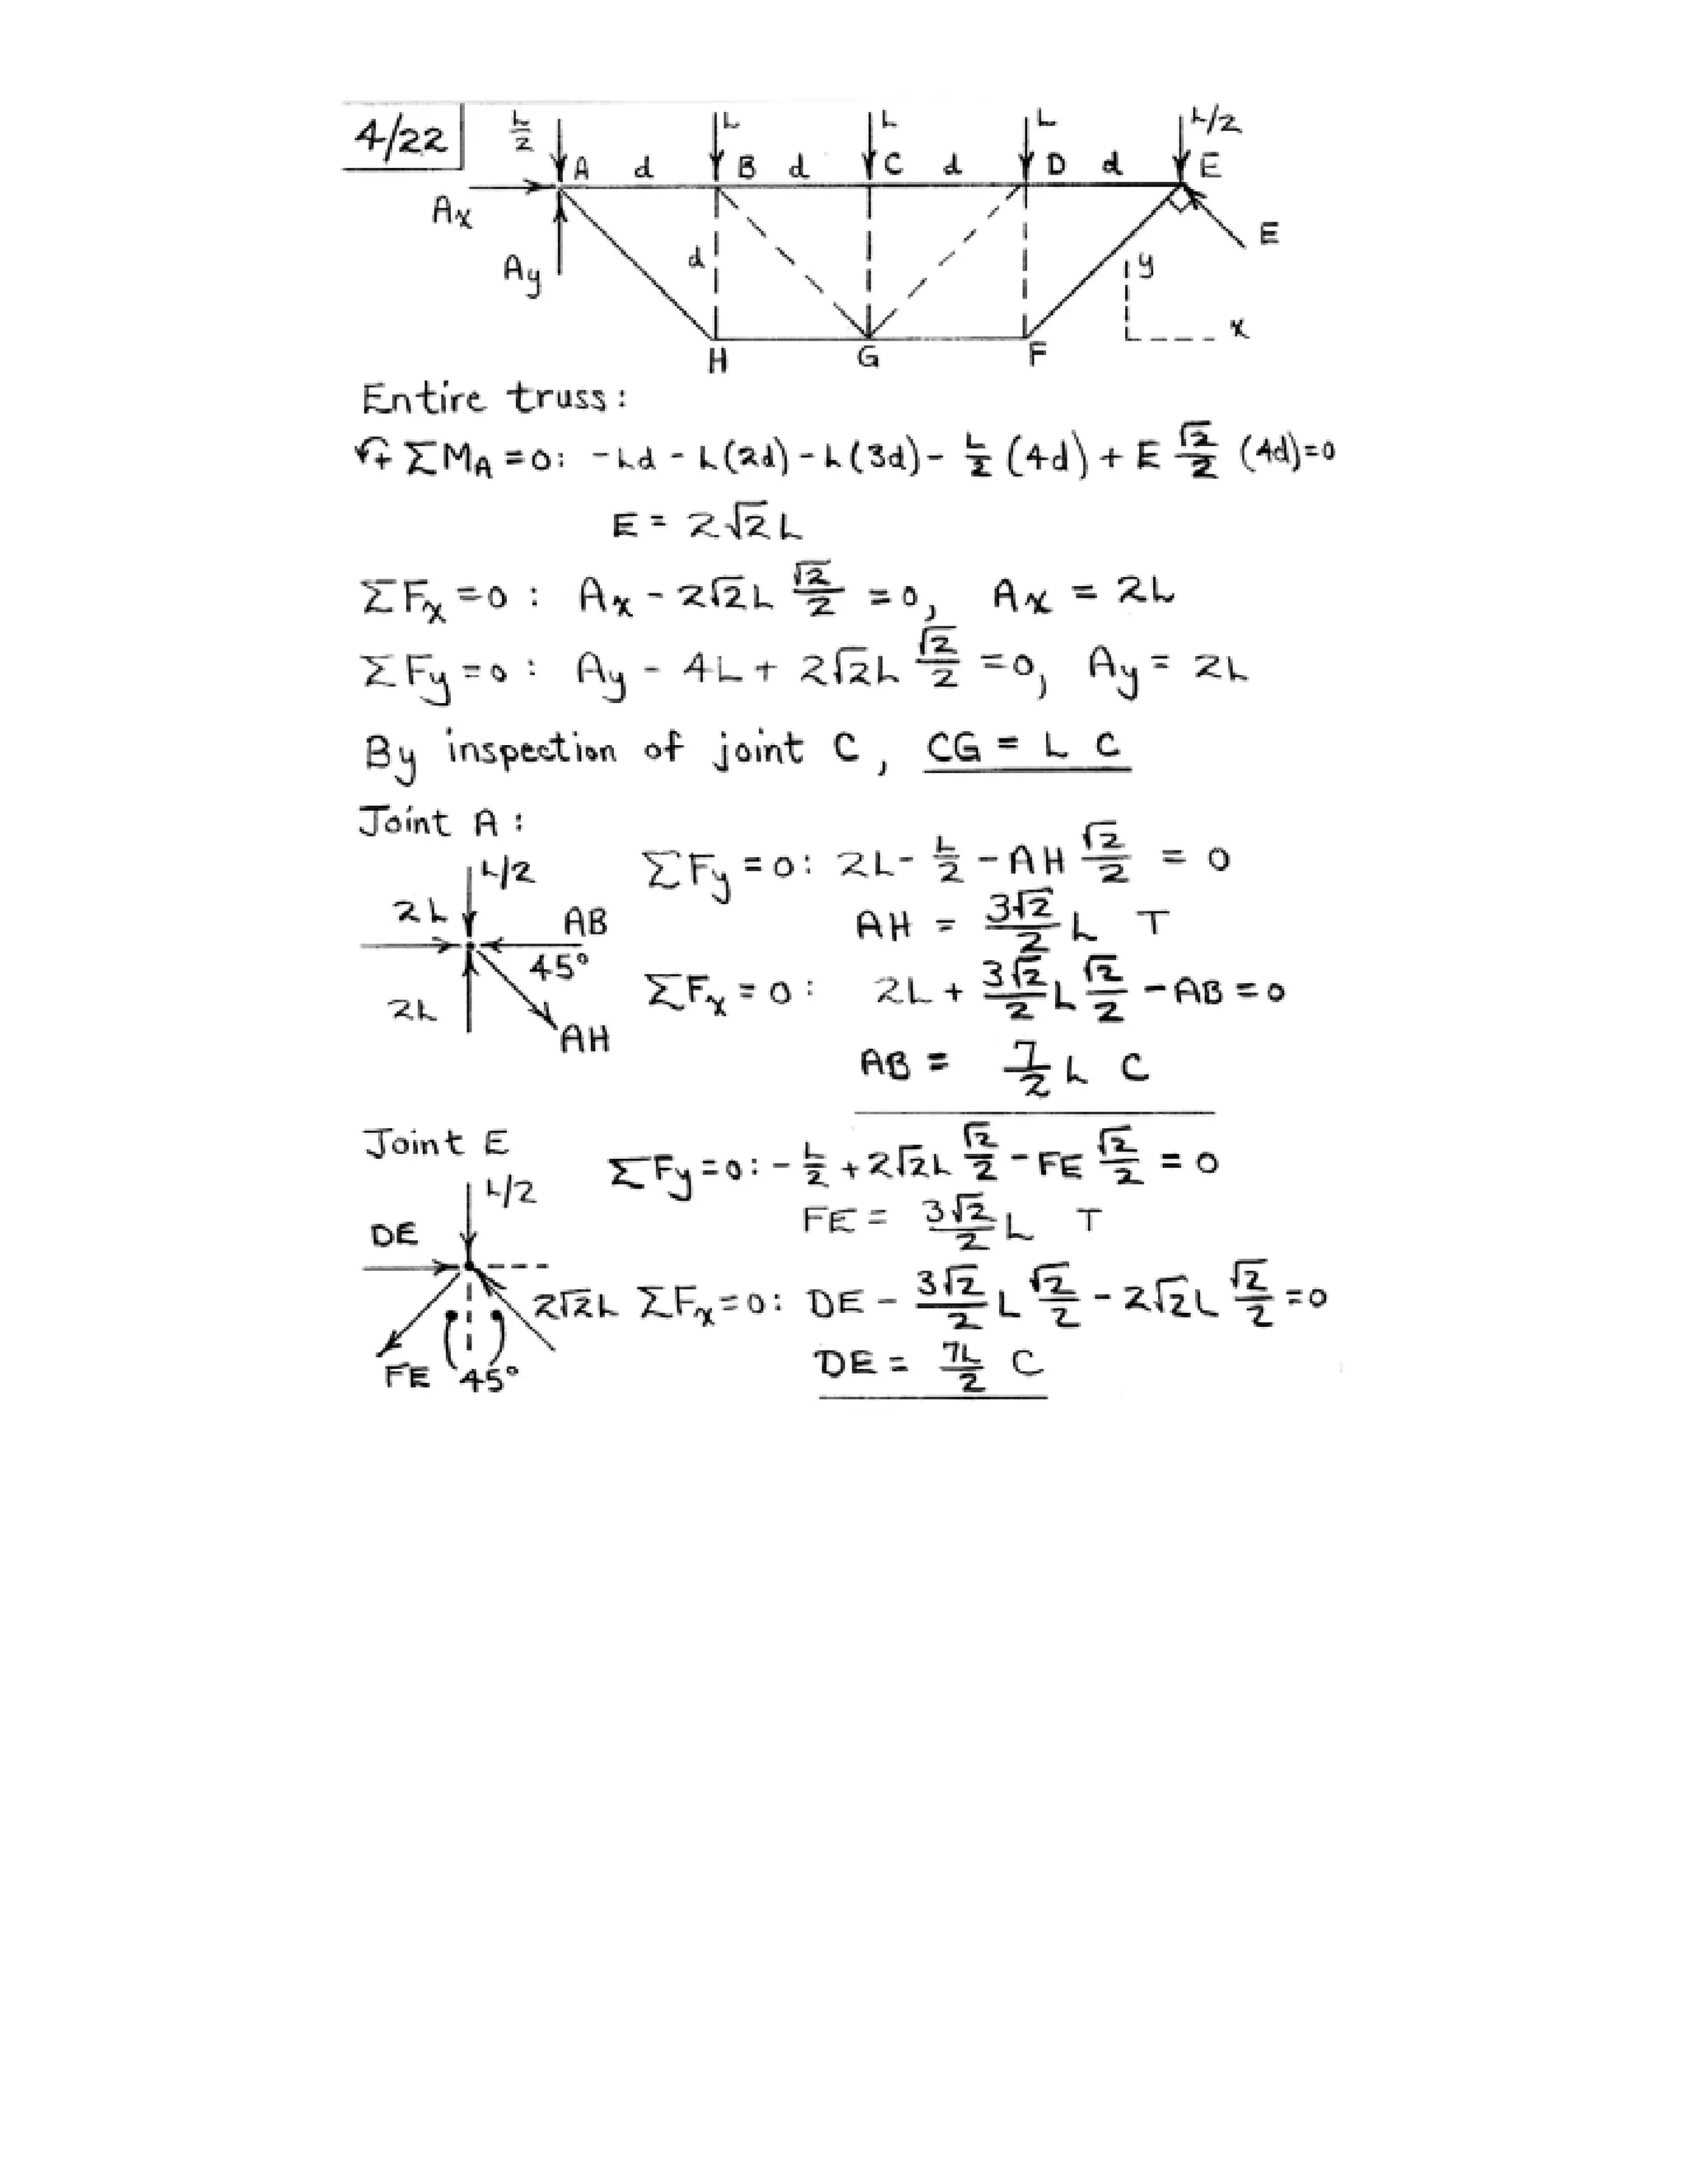 4/22
L/2 L L L L/2
A d B d C d D d E
Ax
Ay d E
y
x
H G F
Entire truss:
+ ΣMA = 0: -Ld - L(2d) - L(3d) - L/2 (4d) + E √2/2 (4d) = 0
E = 2√2 L
ΣFx = 0 : Ax - 2√2 L √2/2 = 0, Ax = 2L
ΣFy = 0 : Ay - 4L + 2√2 L √2/2 = 0, Ay = 2L
By inspection of joint C, CG = L C
Joint A :
L/2
2L AB
45°
2L
AH
ΣFy = 0: 2L - L/2 - AH √2/2 = 0
AH = 3√2/2 L T
ΣFx = 0 : 2L + 3√2/2 L √2/2 - AB = 0
AB = 7/2 L C
Joint E
L/2
DE
2√2 L
FE 45°
ΣFy = 0: - L/2 + 2√2 L √2/2 - FE √2/2 = 0
FE = 3√2/2 L T
ΣFx = 0: DE - 3√2/2 L √2/2 - 2√2 L √2/2 = 0
DE = 7L/2 C